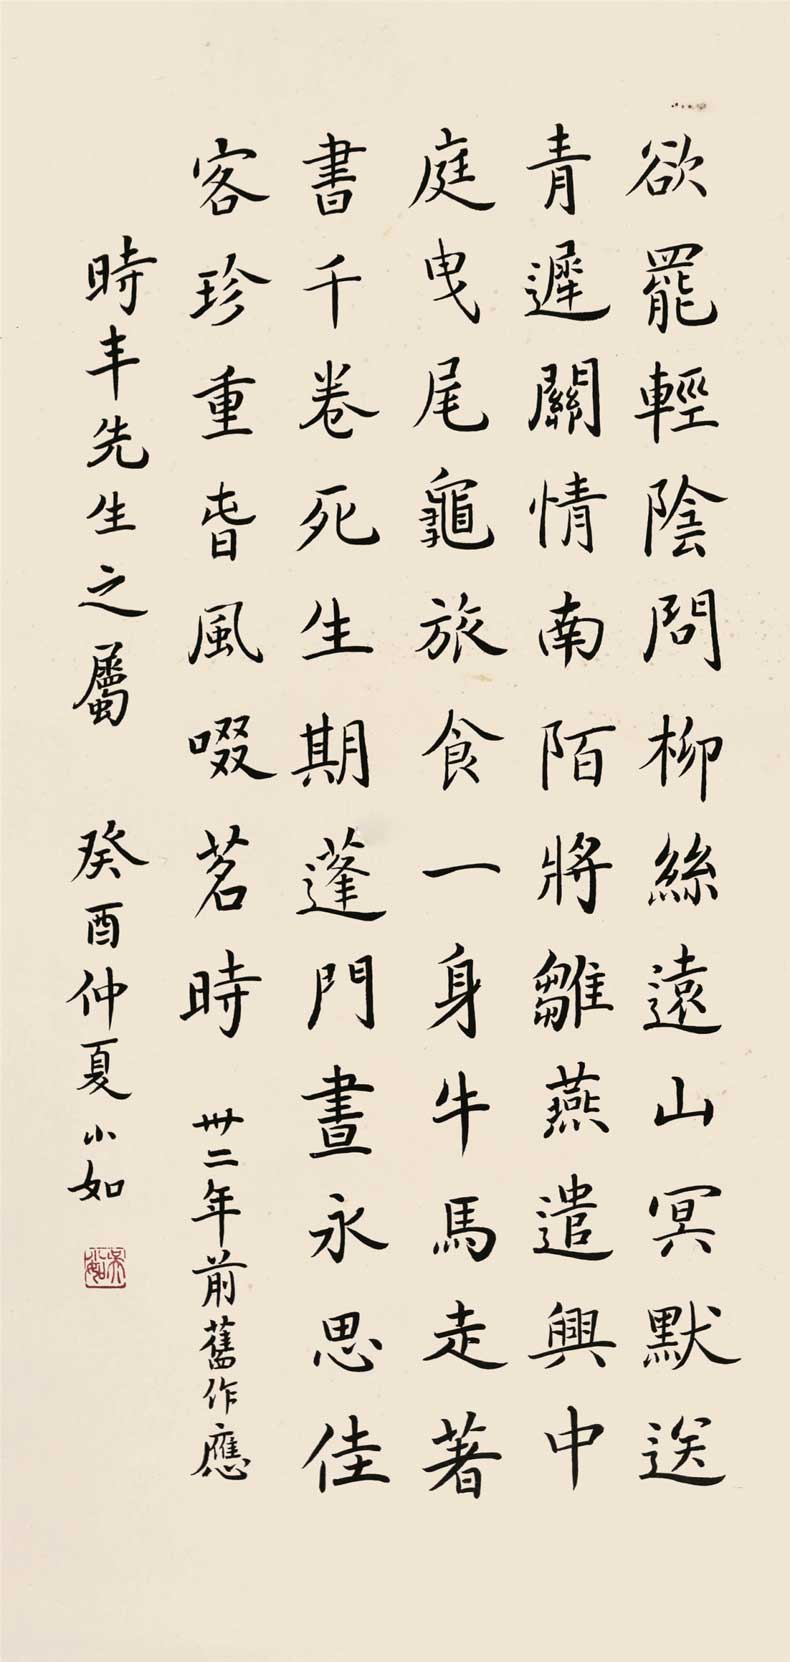 欲罷輕陰問柳絲遠山冥默送
青遲關情南陌將雛燕遣興中
庭曳尾龜旅食一身牛馬走著
書千卷死生期蓬門晝永思佳
客珍重昔風啜茗時 卅二年前舊作應
時丰先生之屬 癸酉仲夏小如
吴小如